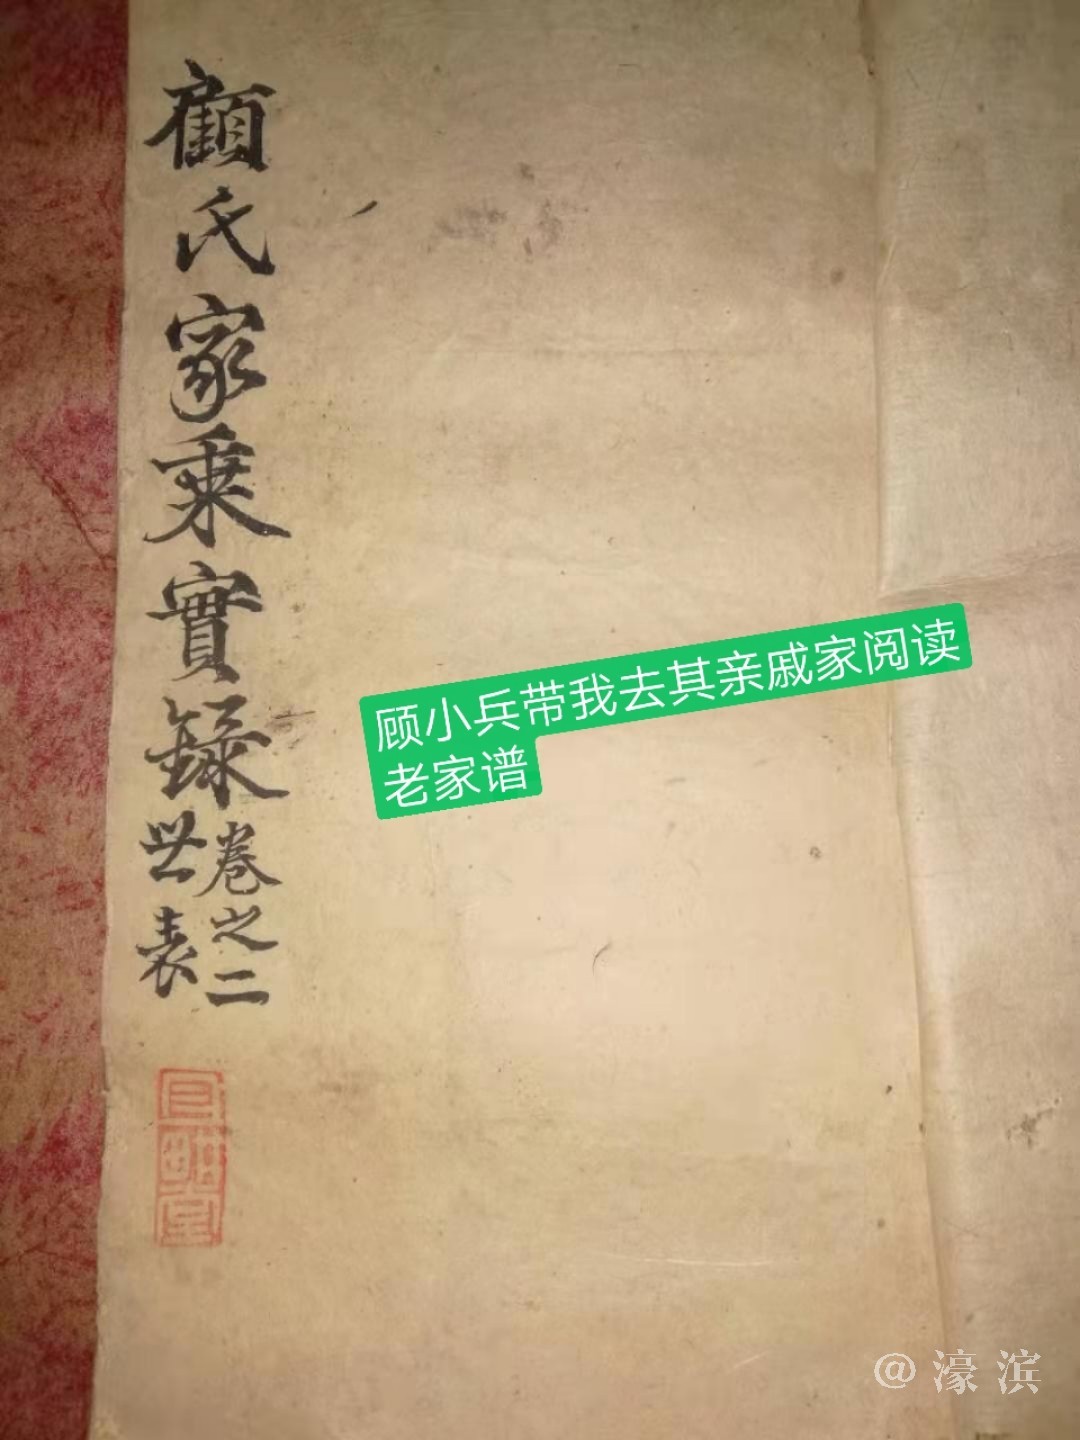 顧氏家乘實録
卷之二
世表
顾小兵带我去其亲戚家阅读
老家谱
@濠滨